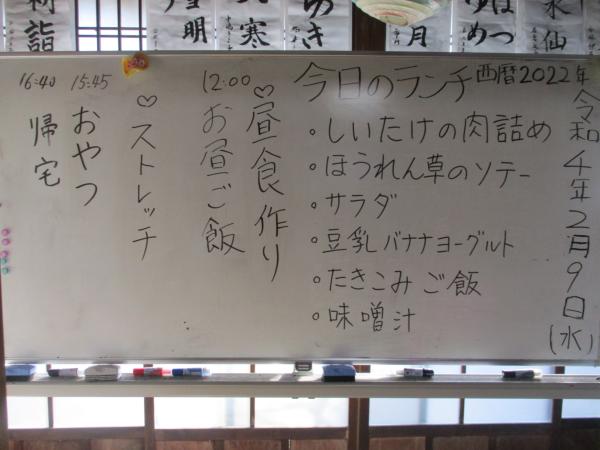 初詣
雪明
寒
月
ゆめ
はつ
水仙
西暦2022年
令和4年2月9日(水)
今日のランチ
・しいたけの肉詰め
・ほうれん草のソテー
・サラダ
・豆乳バナナヨーグルト
・たきこみご飯
・味噌汁
♡昼食作り
12:00
お昼ご飯
♡ストレッチ
15:45
おやつ
16:40
帰宅